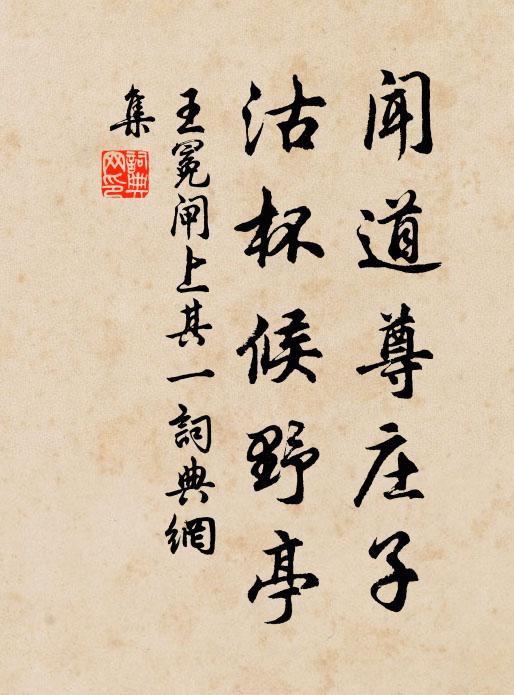 闻道尊庄子
沽杯候野亭
王冕闸上其一 詞典網
集
詞典
网印